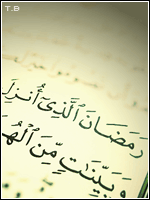 T.B
رَمَضَانَ ٱلَّذِىٓ أُنزِلَ
وَبَيِّنَٰتٍ مِّنَ ٱلْهُ